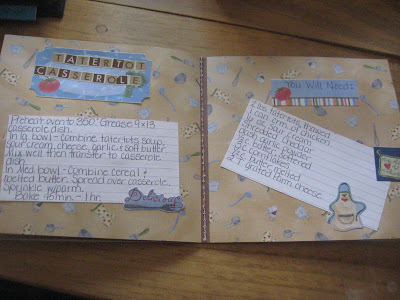 TATERTOT
CASSEROLE
Preheat oven to 350. Grease 9x13
casserole dish.
In lg. bowl - combine tatertots, soup,
sour cream, cheese, garlic, & salt butter
Mix well then transfer to casserole
dish.
In Med bowl - combine cereal &
melted butter. Spread over casserole.
Sprinkle w/parm.
Bake 45 min. - 1 hr.
Delicious
You Will Need:
2 lbs tatertots thawed
1 can crm of
sour cream
shredded cheddar
garlic powder
butter
melted
grated parm. cheese